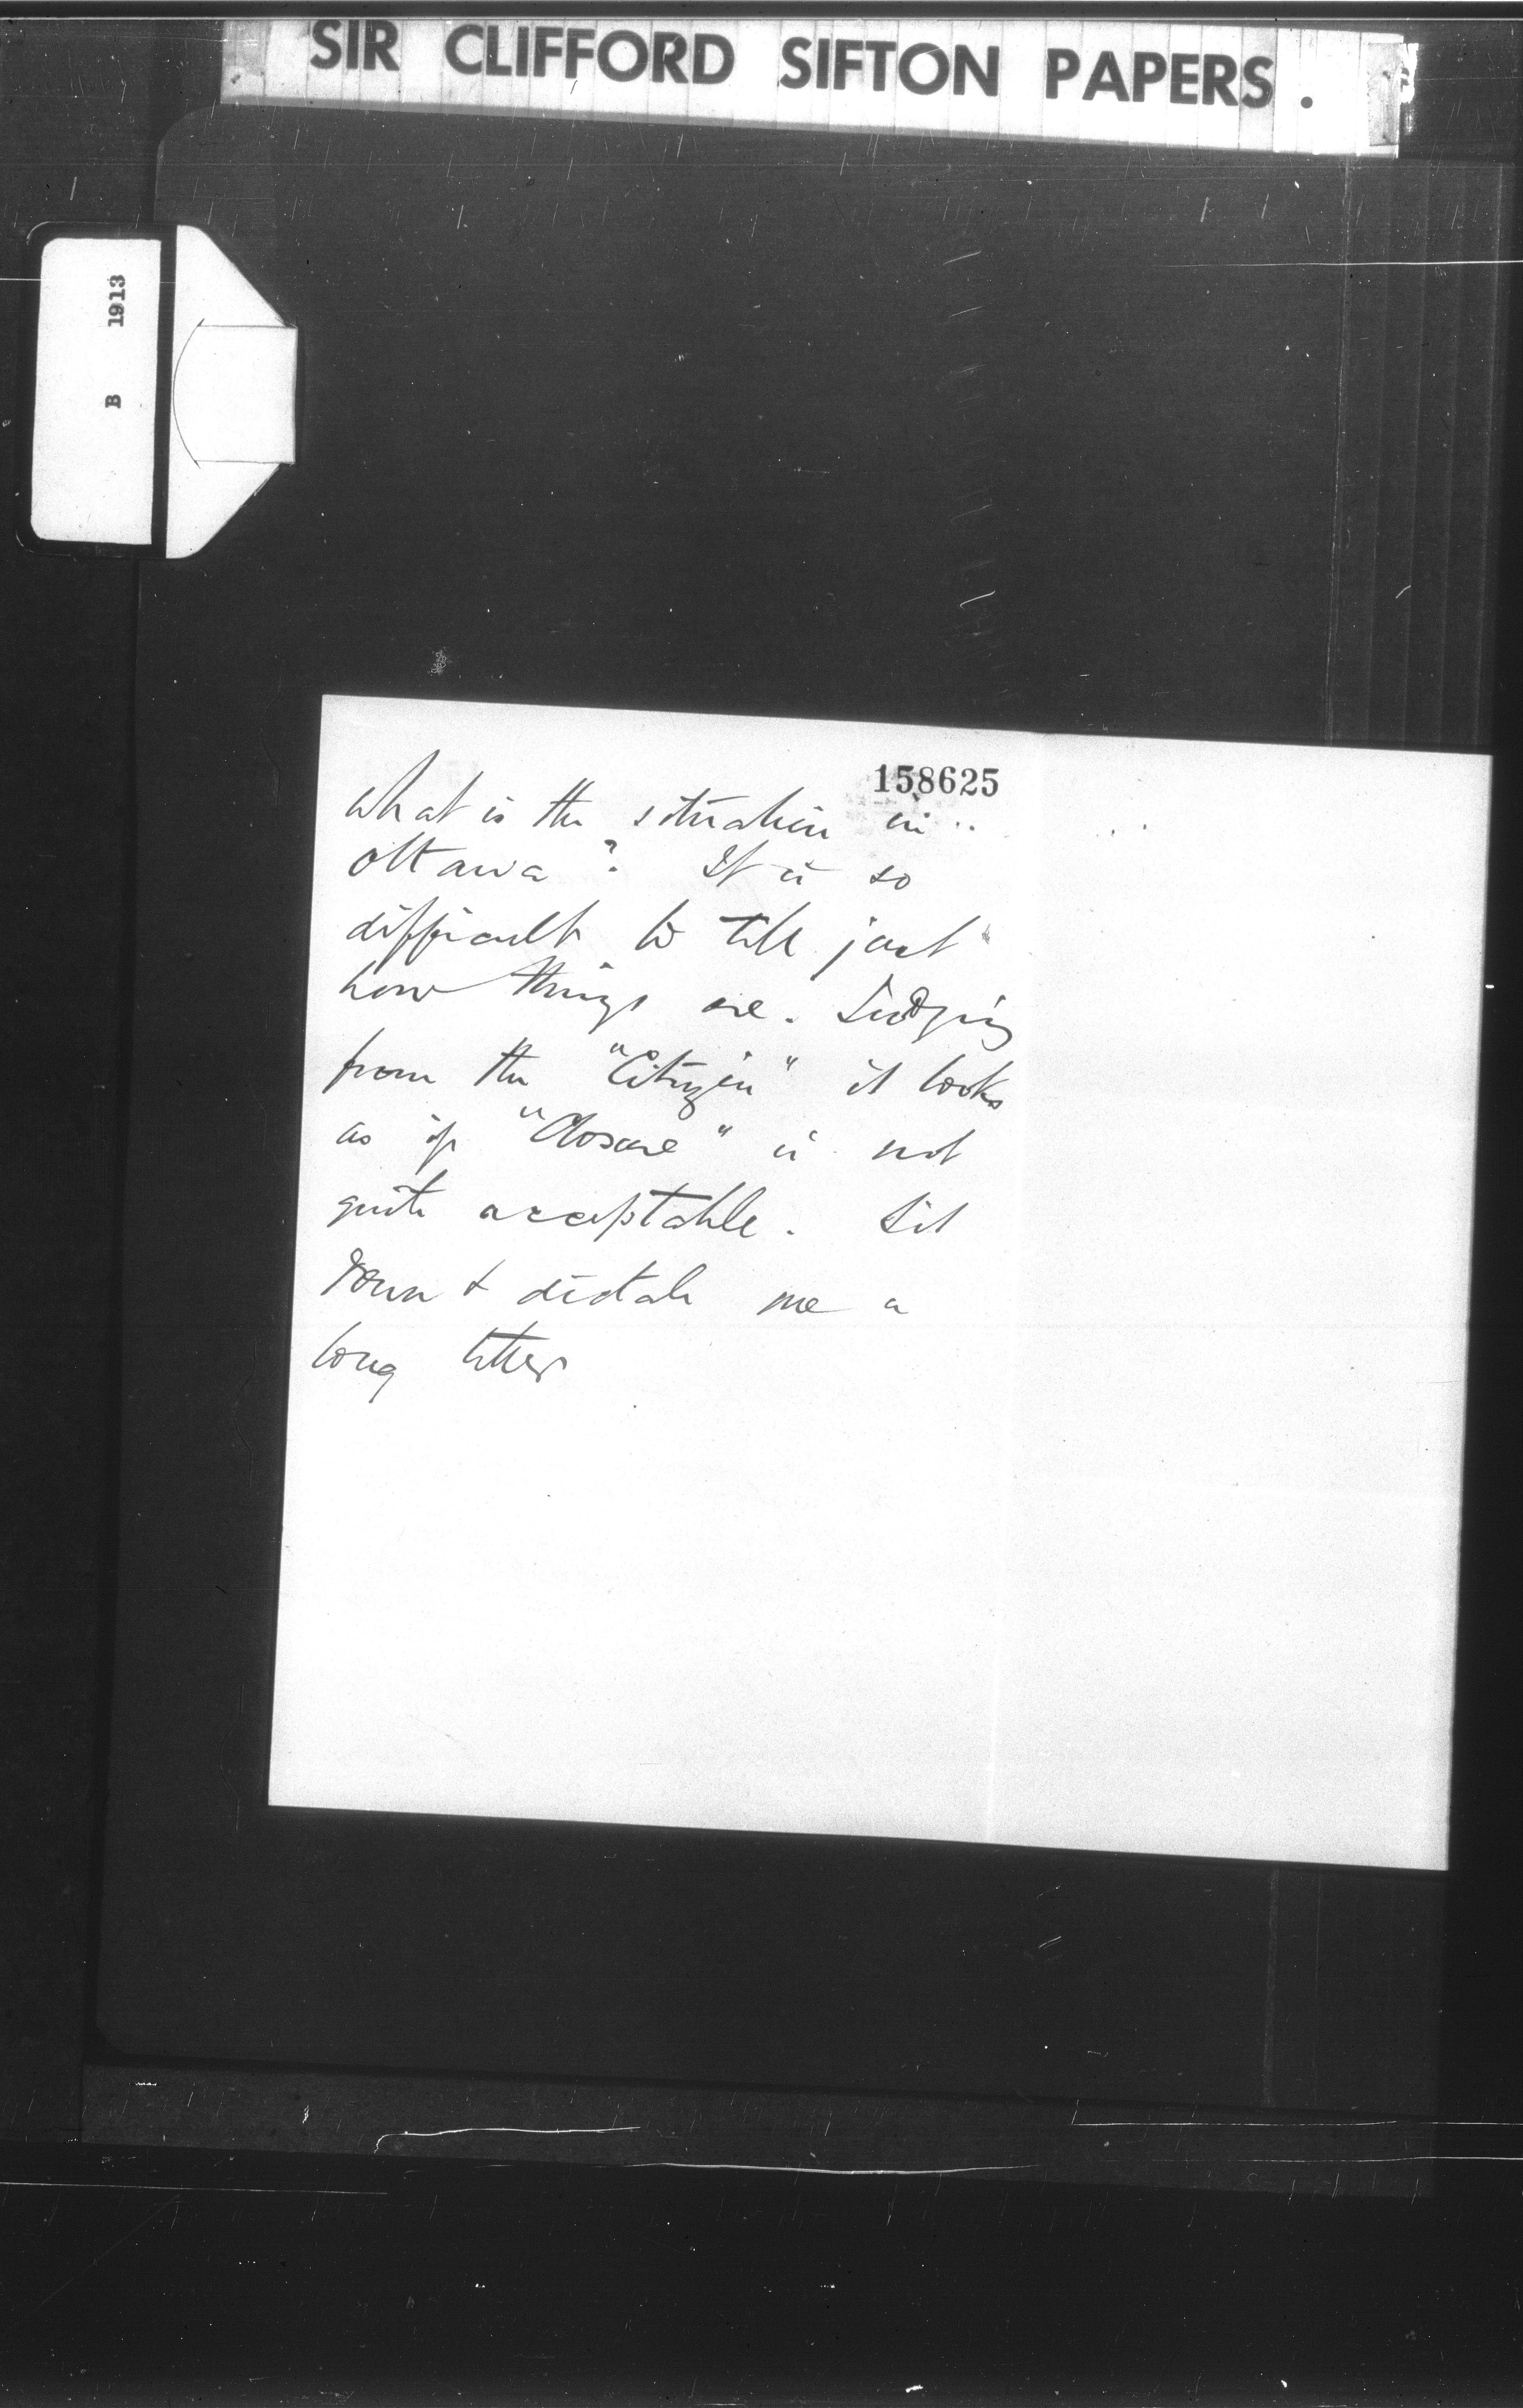 SIR CLIFFORD SIFTON PAPERS.
B 1913
158625
What is the situation in
Ottawa? It is so
difficult to tell just
how things are. Judging
from the "Citizen" it looks
as if "Closure" is not
quite acceptable. Sit
down & dictate me a
long letter